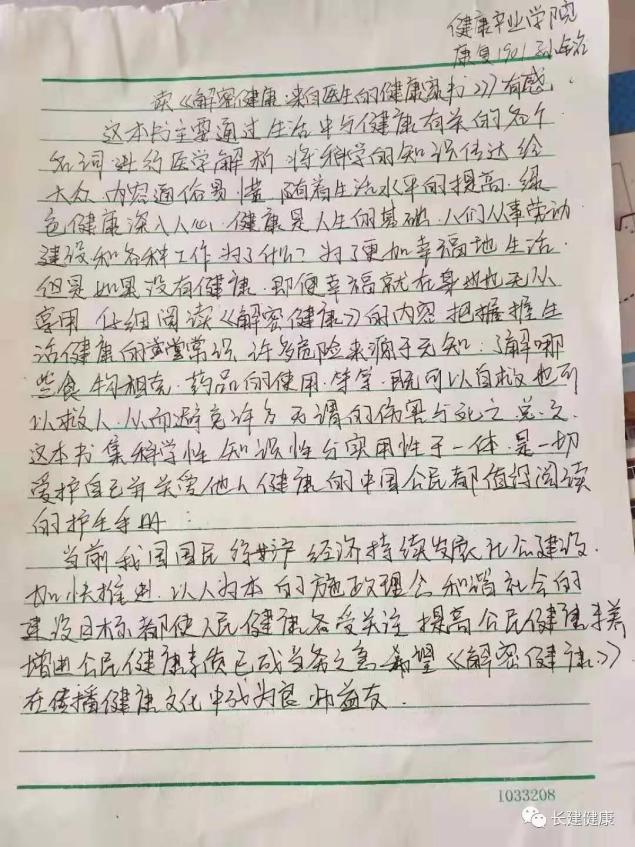 健康产业学院
康复1901 孙铭
读《解密健康:来自医生的健康密书》有感.
这本书主要通过生活中与健康有关的各个
名词进行医学解析 将科学的知识传达给
大众 内容通俗易懂 随着生活水平的提高.绿
色健康深入人心.健康是人生的基础.人们从事劳动
建设和各种工作为了什么?为了更加幸福地生活.
但是如果没有健康.即便幸福就在身边也无从
享用 仔细阅读《解密健康》的内容 把握握生
活健康的常识 许多危险来源于无知:了解哪
些食物相克.药品的使用.等等.既可以自救也可
以救人.从而避免许多无谓的伤害与死亡 总之
这本书集科学性 知识性与实用性于一体.是一切
爱护自己并关爱他人健康的中国公民都值得阅读
的护生手册:
当前我国国民 经济持续发展 社会建设.
加快推进.以人为本的施政理念 和谐社会的
建设目标都使人民健康备受关注 提高公民健康素养
增进公民健康素质已成当务之急 希望《解密健康》
在传播健康文化中成为良师益友.
1033208
长建健康